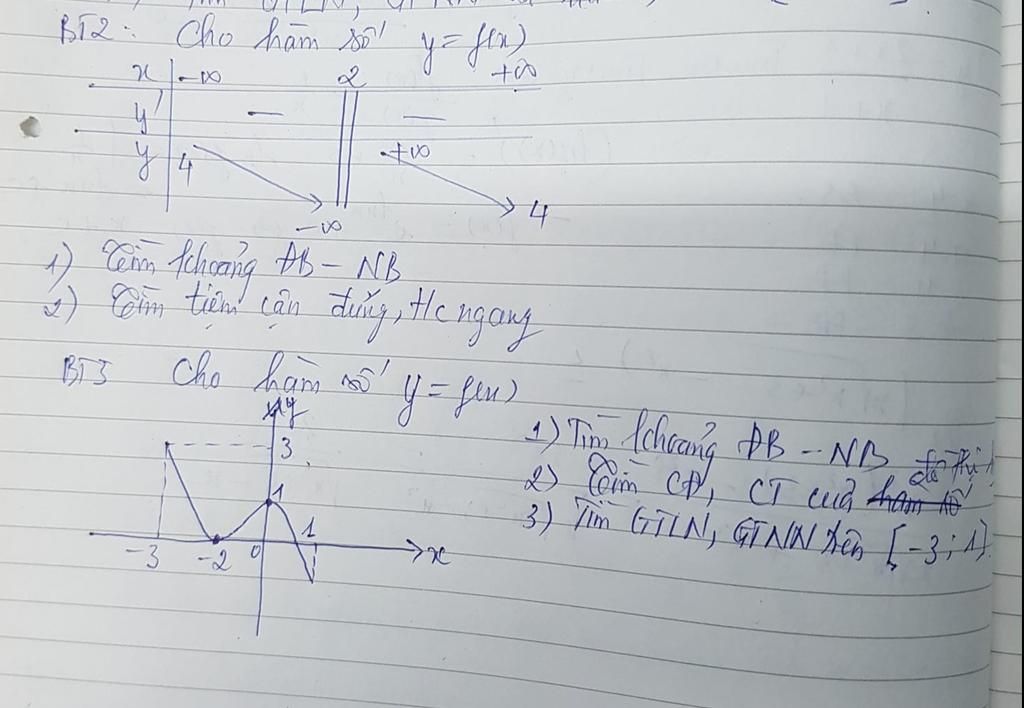 BT2: Cho hàm số y = f(x)
x -∞ 2 +∞
y' - -
y 4 -∞ +∞ 4
1) Tìm khoảng ĐB - NB
2) Tìm tiệm cận đứng, t/c ngang
BT3 Cho hàm số y = f(x)
y
3
1 1
-3 -2 0 x
1) Tìm khoảng ĐB - NB
2) Tìm CĐ, CT của hàm số đồ thị
3) Tìm GTLN, GTNN trên [-3; 1]